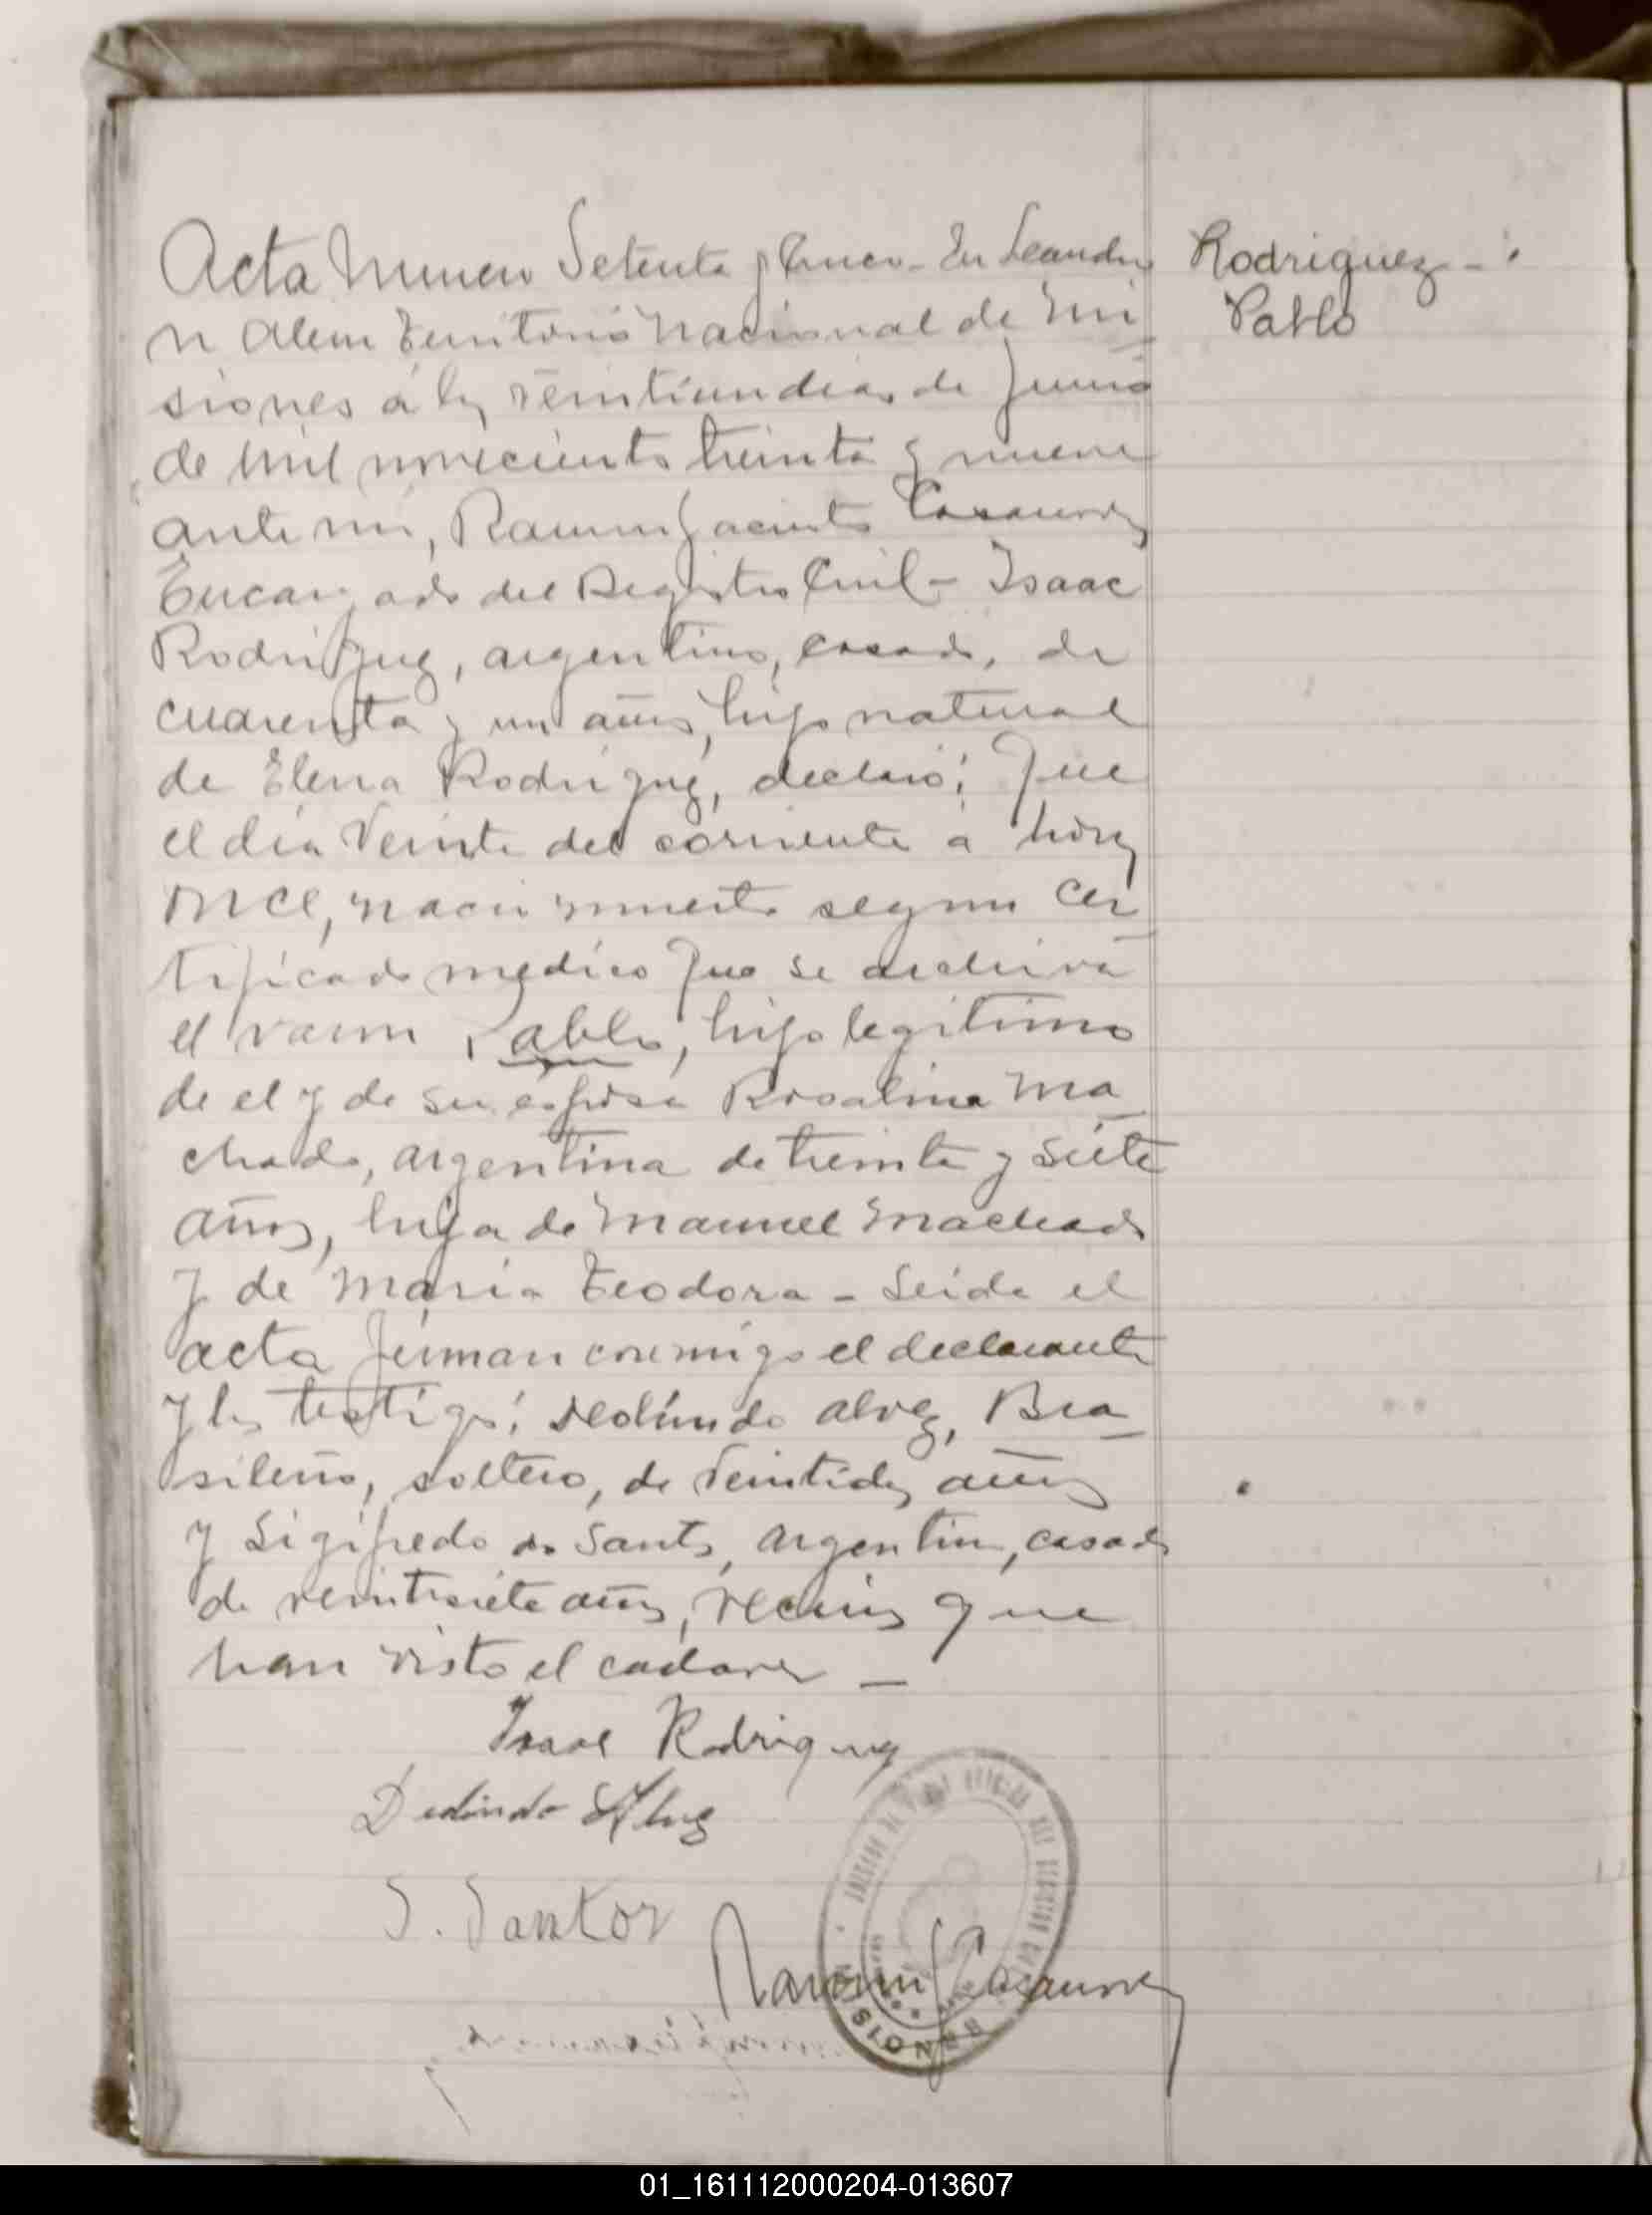 Acta Numero Setenta y Cinco - En Leandro
N Alem Territorio Nacional de Mi
siones á los veintiun dias de Junio
de mil novecientos treinta y nueve
ante mi, Ramon Jacinto Casanova
Encargado del Registro Civil - Isaac
Rodriguez, argentino, casado, de
cuarenta y un años, hijo natural
de Elena Rodriguez, declaró: Que
el dia Veinte del corriente a horas
once, nacio muerto segun cer
tificado medico que se archiva
el varon Pablo, hijo legitimo
de el y de su esposa Rosalina Ma
chado, argentina de treinta y siete
años, hija de Manuel Machado
y de Maria Teodora - Leida el
acta firman conmigo el declarante
y los testigos: Deolindo Alvez, Bra
sileño, soltero, de veintidos años
y Sigifredo do Santos, argentino, casado
de veintisiete años, vecinos que
han visto el cadaver -
Isaac Rodriguez
Dedindo Alvez
S. Santos
Ramon J Casanova
Rodriguez -
Pablo
MISIONES
01_161112000204-013607